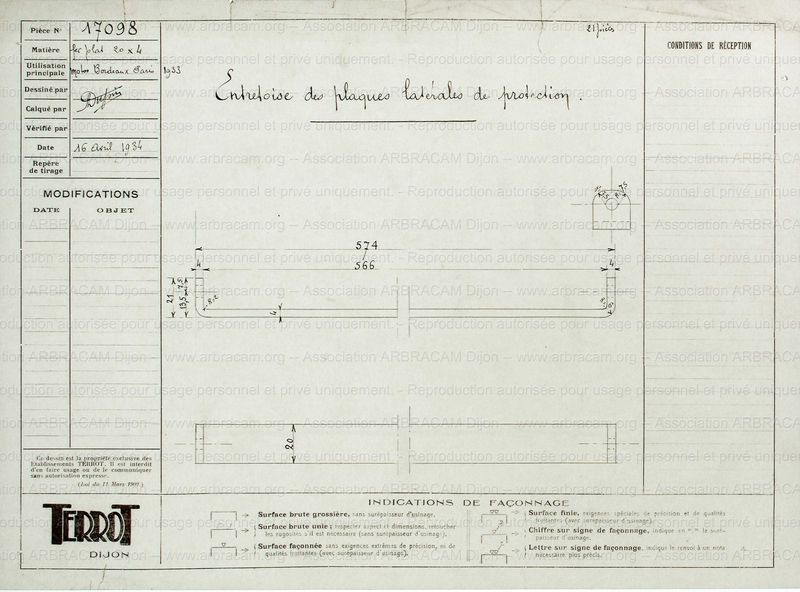 Pièce N° 17098
21 pièces
Matière fer plat 20 x 4
Utilisation
principale Motos Bordeaux Paris 1933
Dessiné par
Calqué par
Vérifié par
Date 16 Avril 1934
Repère
de tirage
MODIFICATIONS
DATE OBJET
CONDITIONS DE RÉCEPTION
Entretoise des plaques latérales de protection.
574
566
4
4
21
13,5
7,5
4
20
Ce dessin est la propriété exclusive des
Etablissements TERROT. Il est interdit
d'en faire usage ou de le communiquer
sans autorisation expresse.
(Loi du 11 Mars 1902.)
TERROT
DIJON
INDICATIONS DE FAÇONNAGE
Surface brute grossière, sans surépaisseur d'usinage.
Surface brute unie; respecter aspect et dimensions, retoucher
les rugosités s'il est nécessaire (sans surépaisseur d'usinage).
Surface façonnée sans exigences extrêmes de précision, et de
qualités frottantes (avec surépaisseur d'usinage).
Surface finie, exigences spéciales de précision et de qualités
frottantes (avec surépaisseur d'usinage)
Chiffre sur signe de façonnage, indique en m/m la surépaisseur d'usinage.
Lettre sur signe de façonnage, indique le renvoi à un nota
nécessaire plus précis.
www.arbracam.org -- Association ARBRACAM Dijon -- www.arbracam.org -- Association ARBRACAM Dijon
Reproduction autorisée pour usage personnel et privé uniquement.